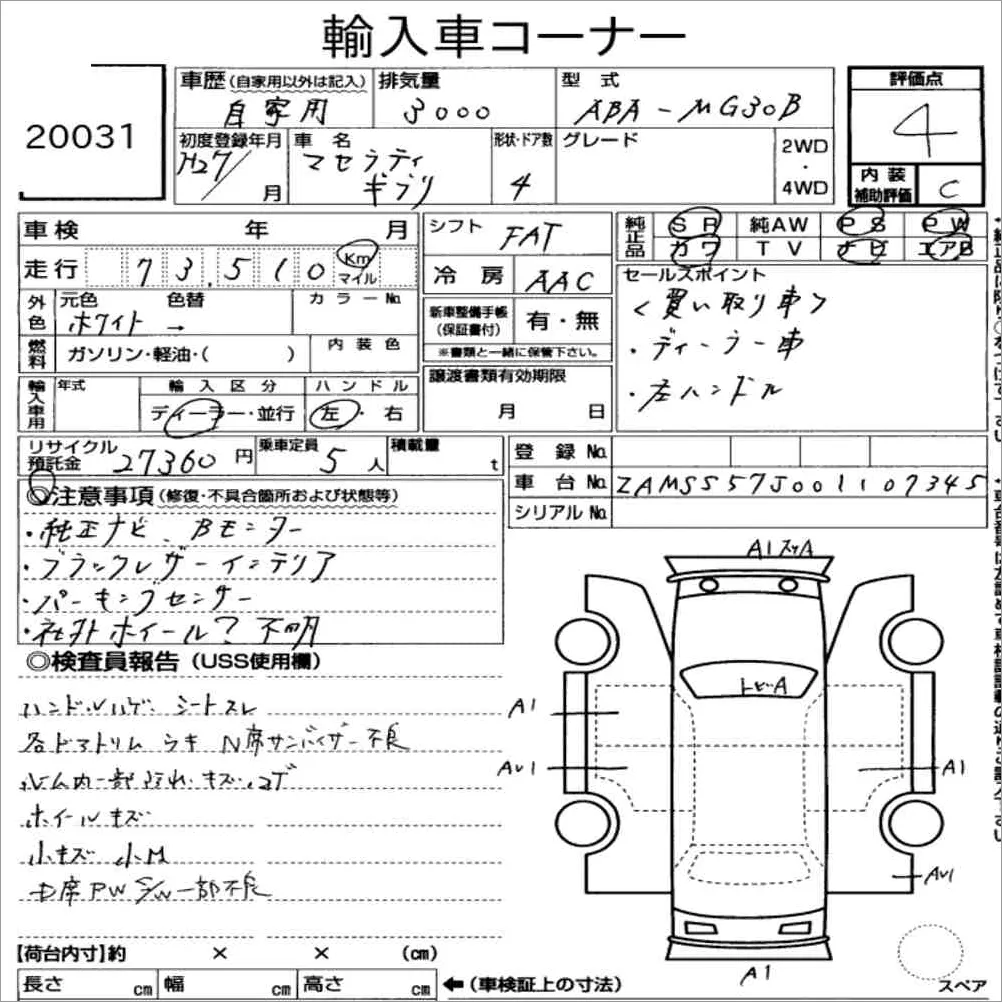 輸入車コーナー
20031
車歴(自家用以外は記入) 排気量 型式 評価点
自家用 3000 ABA-MG30B 4
初度登録年月 車名 形状・ドア数 グレード 2WD・4WD 内装補助評価 C
H27/ 月 マセラティ ギブリ 4
車検 年 月 シフト FAT 純正品 SR 純AW PS PW
走行 73,510 Km マイル 冷房 AAC カワ TV ナビ エアB
外色 元色 色替 カラーNo. 新車整備手帳(保証書付) 有・無 セールスポイント
ホワイト → ※書類と一緒に保管下さい。 <買い取り車>
燃料 ガソリン・軽油・( ) 内装色 ・ディーラー車
輸入車用 年式 輸入区分 ハンドル 譲渡書類有効期限 ・左ハンドル
ディーラー・並行 左・右 月 日
リサイクル預託金 27360円 乗車定員 5人 積載量 t 登録No.
車台No. ZAMSS57J001107345
シリアルNo.
◎注意事項(修復・不具合箇所および状態等)
・純正ナビ、Bモニター
・ブラックレザーインテリア
・パーキングセンサー
・社外ホイール?不明
◎検査員報告(USS使用欄)
ハンドルハゲ シートスレ
各ドアトリム ウキ N席サンバイザー不良
ルーム内一部汚れ・キズ・コゲ
ホイールキズ
小キズ 小M
PW S/W一部不良
A1 スリA
トビA
A1
AU1 A1
AU1
A1
スペア
【荷台内寸】約 × × (cm)
長さ cm 幅 cm 高さ cm ←(車検証上の寸法)